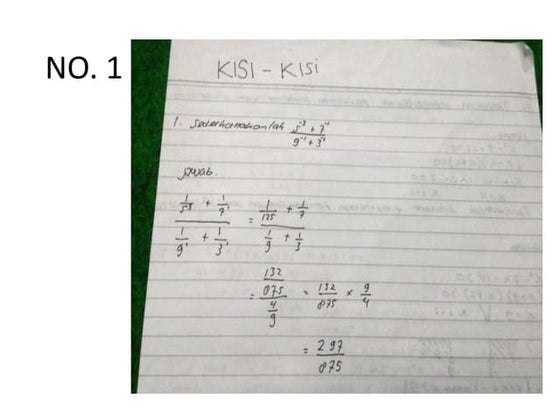 NO. 1
KISI - KISI
1. Sederhanakanlah (5⁻³ + 7⁻¹)/(9⁻¹ + 3⁻¹)
Jawab.
(1/5⁻³ + 1/7¹)/(1/9¹ + 1/3¹) = (1/125 + 1/7)/(1/9 + 1/3)
= (132/875)/(4/9) = 132/875 × 9/4
= 297/875